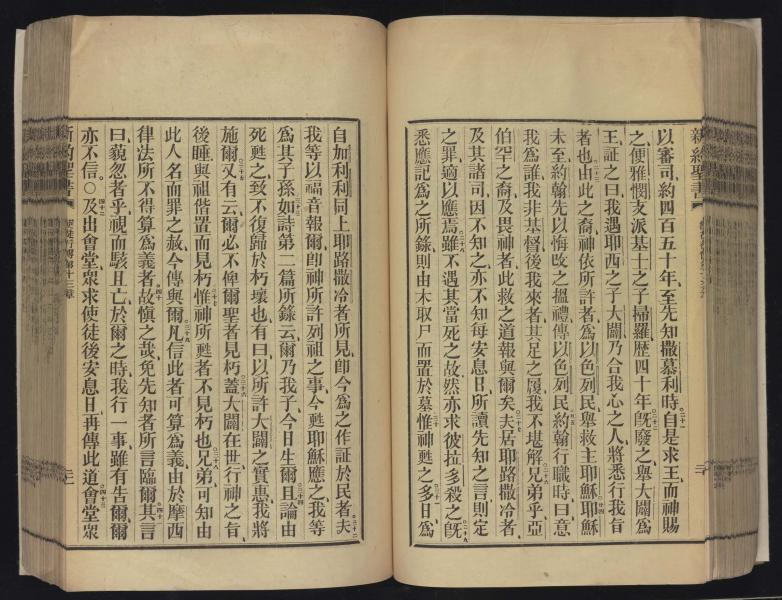 新約聖書
以審司約四百五十年至先知撒慕利時自是求王而神賜
之便雅憫支派基士之子掃羅歷四十年旣廢之舉大闢爲
王証之曰我遇耶西之子大闢乃合我心之人將悉行我旨
者也由此之裔神依所許者爲以色列民舉救主耶穌耶穌
未至約翰先以悔改之搵禮傳以色列民約翰行職時曰意
我爲誰我非基督後我來者其足之履我不堪解兄弟乎亞
伯罕之裔及畏神者此救之道報與爾矣夫居耶路撒冷者
及其諸司因不知之亦不知每安息日所讀先知之言則定
之罪適以應焉雖不遇其當死之故然亦求彼拉多殺之旣
悉應記爲之所錄則由木取尸而置於墓惟神甦之多日爲
自加利利同上耶路撒冷者所見卽今爲之作証於民者夫
我等以福音報爾卽神所許列祖之事今甦耶穌應之我等
爲其子孫如詩第二篇所錄云爾乃我子今日生爾且論由
死甦之致不復歸於朽壞也有曰以所許大闢之實惠我將
施爾又有云爾必不俾爾聖者見朽蓋大闢在世行神之旨
後睡與祖偕置而見朽惟神所甦者不見朽也兄弟可知由
此人名而罪之赦今傳與爾凡信此者可算爲義由於摩西
律法所不得算爲義者故愼之哉免先知者所言臨爾其言
曰藐忽者乎視而駭且亡於爾之時我行一事雖有告爾爾
亦不信○及出會堂眾求使徒後安息日再傳此道會堂眾
新約聖書 使徒行傳第十三章